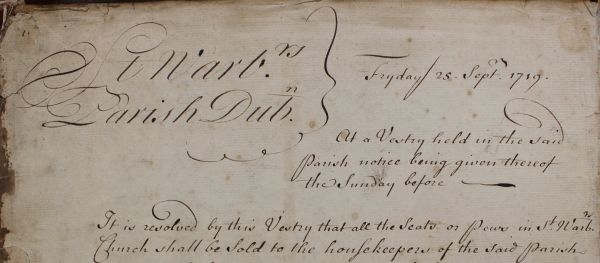 St Warb.rs
Parish Dub.n
Fryday 28. Sept.r 1719.
At a Vestry held in the said
Parish notice being given thereof
the Sunday before
It is resolved by this Vestry that all the Seats or Pews in St. Warb.rs
Church shall be sold to the housekeepers of the said Parish